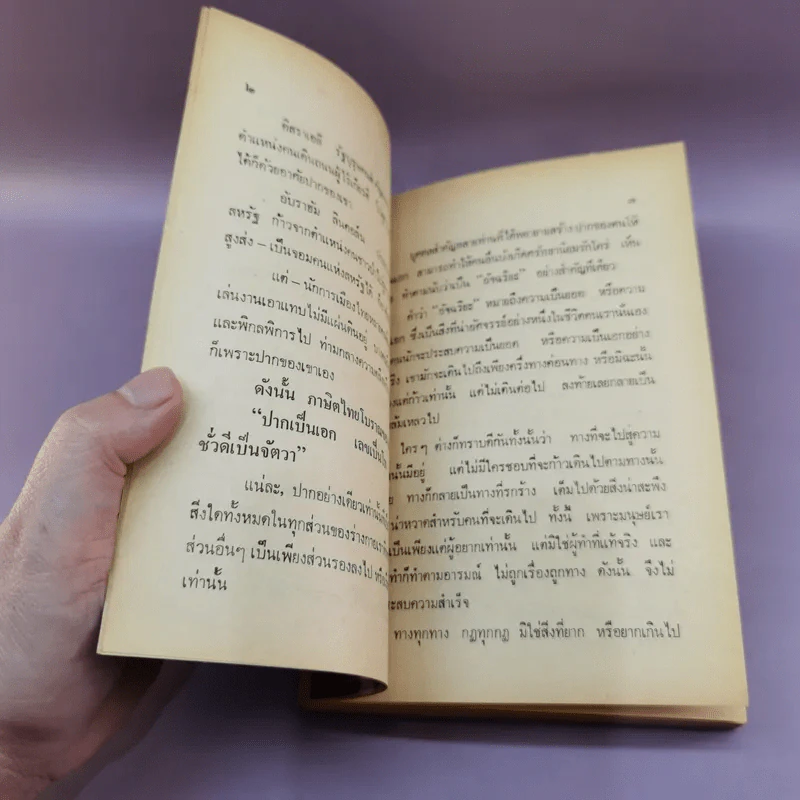 ๒
ดิสราเอลี รัฐบุรุษ
ตำแหน่งคนเดินถนนผู้ไร้เกียรติ
ได้ก็ด้วยอาศัยปากของเขา
ยับราฮัม ลินคอล์น
สหรัฐ ก้าวจากตำแหน่งคนชาว
สูงส่ง – เป็นจอมคนแห่งสหรัฐได้
แต่ – นักการเมืองไทยหลาย
เล่นงานเอาแทบไม่มีแผ่นดินอยู่
และพิกลพิการไป ท่ามกลางความ
ก็เพราะปากของเขาเอง
ดังนั้น ภาษิตไทยโบราณ
“ปากเป็นเอก เลขเป็น
ชั่วดีเป็นจัตวา”
แน่ละ, ปากอย่างเดียวเท่านั้น
สิ่งใดทั้งหมดในทุกส่วนของร่างกาย
ส่วนอื่นๆ เป็นเพียงส่วนรองลงไป
เท่านั้น
๓
บุคคลสำคัญหลายท่านที่ได้พยายามสร้างปากของตนให้
สามารถทำให้คนอื่นบังเกิดศรัทธานิยมรักใคร่ เห็น
คำคมนับว่าเป็น “อัจฉริยะ” อย่างสำคัญทีเดียว
คำว่า “อัจฉริยะ” หมายถึงความเป็นยอด หรือความ
ซึ่งเป็นสิ่งที่น่าอัศจรรย์อย่างหนึ่งในชีวิตคนเรานั้นเอง
คนนักจะประสบความเป็นยอด หรือความเป็นเอกอย่าง
เขามักจะเดินไปถึงเพียงครึ่งทางค่อนทาง หรือมิฉะนั้น
แต่ก้าวเท่านั้น แต่ไม่เดินต่อไป ลงท้ายเลยกลายเป็น
ล้มเหลวไป
ใครๆ ต่างก็ทราบดีกันทั้งนั้นว่า ทางที่จะไปสู่ความ
นั้นมีอยู่ แต่ไม่มีใครชอบที่จะก้าวเดินไปตามทางนั้น
ทางก็กลายเป็นทางที่รกร้าง เต็มไปด้วยสิ่งน่าสะพึง
น่าหวาดสำหรับคนที่จะเดินไป ทั้งนี้ เพราะมนุษย์เรา
เป็นเพียงแต่ผู้อยากเท่านั้น แต่มิใช่ผู้ทำที่แท้จริง และ
ทำก็ทำตามอารมณ์ ไม่ถูกเรื่องถูกทาง ดังนั้น จึงไม่
ประสบความสำเร็จ
ทางทุกทาง กฎทุกกฎ มิใช่สิ่งที่ยาก หรือยากเกินไป